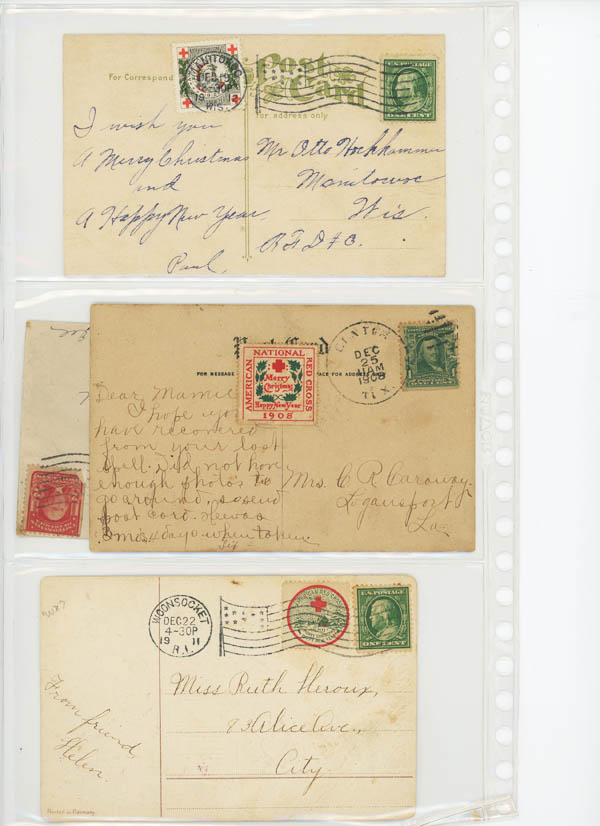 For Correspond
MANITOWOC
DEC 19
WIS.
Post Card
for address only
U.S. POSTAGE
ONE CENT
I wish you
A Merry Christmas
and
A Happy New Year,
Paul,
Mr Otto Hochhammer
Manitowoc
Wis.
Post Card
FOR MESSAGE
FOR ADDRESS
AMERICAN NATIONAL RED CROSS
Merry Christmas
Happy New Year
1908
DEC
25
AM
1908
TEX.
Dear Mamie
I hope you
have recovered
from your last
spell. Did not have
enough photos to
go around, so send
post card. He was
when taken.
Mrs. C. R. Caraway
Logansport
La.
WOONSOCKET
DEC 22
4-30P
1911
R.I.
U.S. POSTAGE
ONE CENT
From friend,
Helen.
Miss Ruth Heroux,
83 Alice Ave.,
City.
Printed in Germany